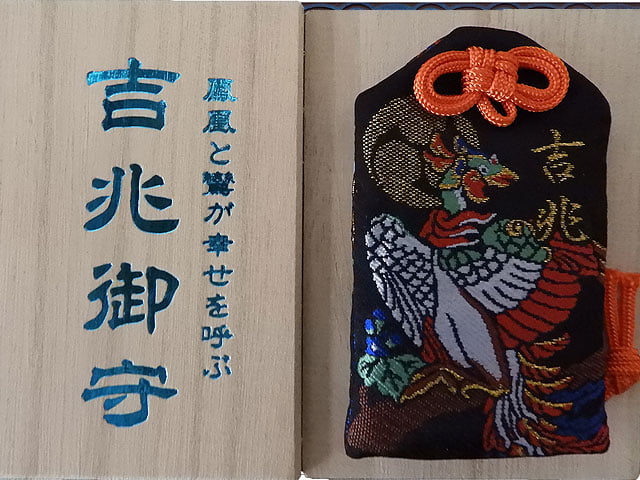 鳳凰と鸞が幸せを呼ぶ
吉兆御守
吉兆